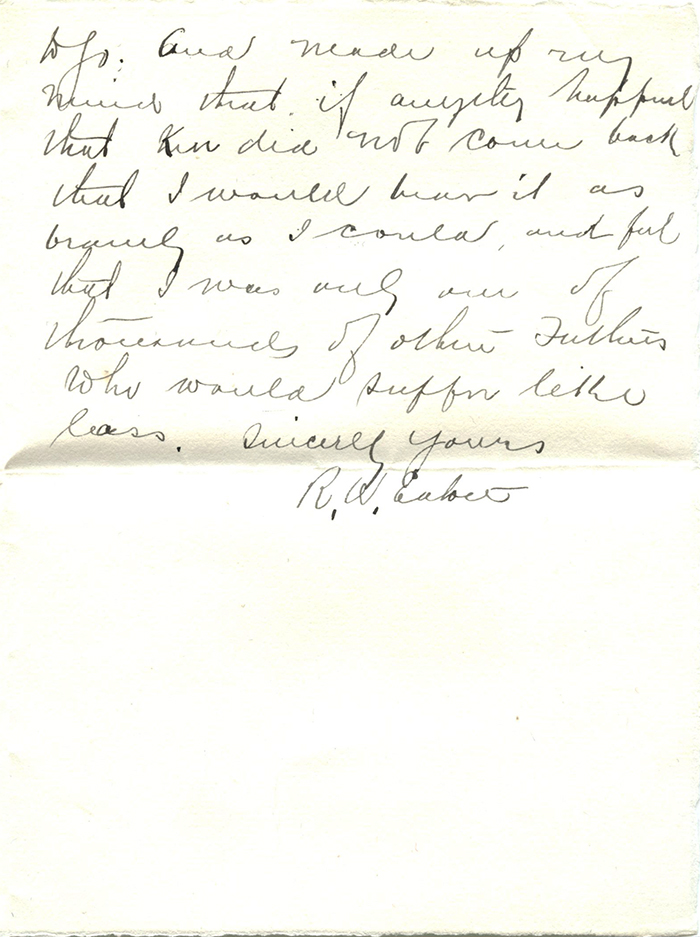 to go. And made up my
mind that if anyth happend
that Ken did not come back
that I would bear it as
bravely as I could, and feel
that I was only one of
thousands of other Fathers
who would suffer like
loss. Sincerely yours
R. W.